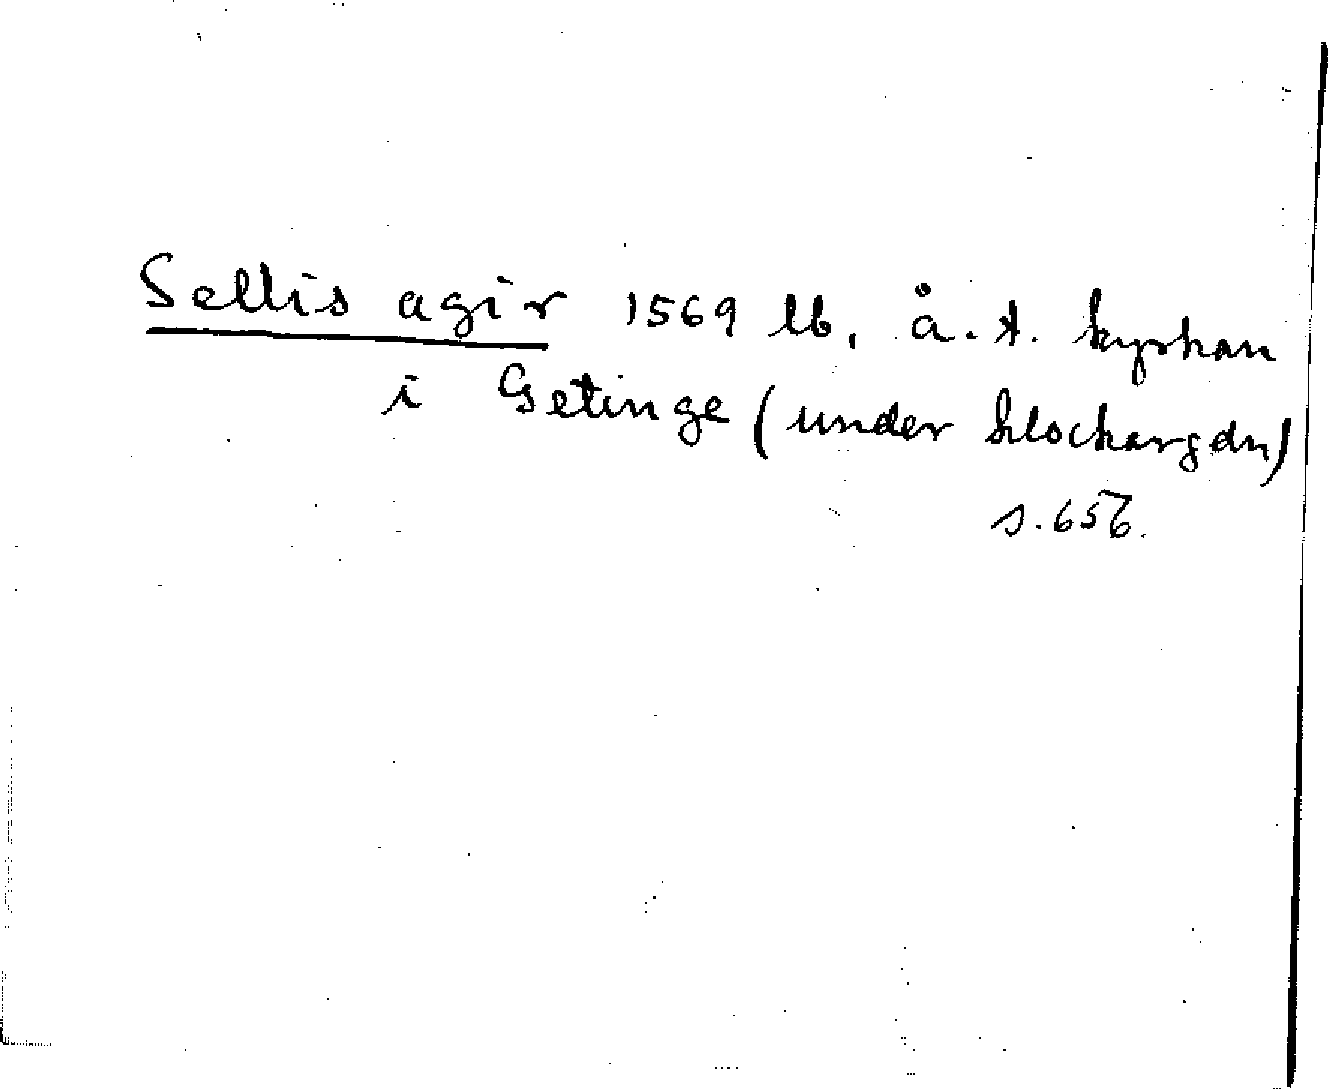 Sellis agir 1569 lb, å.t. kyrkan
i Getinge (under klockargdn)
s. 656.